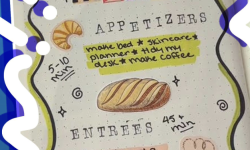 APPETIZERS
make bed ★ skincare ★
planner ★ tidy my
desk ★ make coffee
5-10
min
ENTRÉES
45+
min